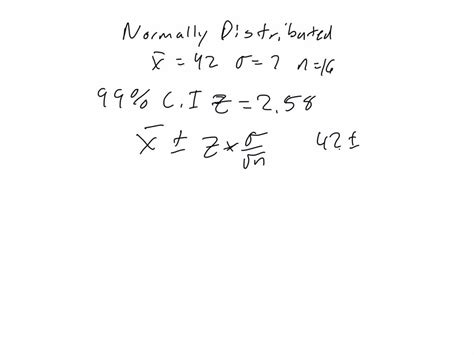 Normally Distributed
x̄ = 42 σ = 7 n = 16
99% C.I z = 2.58
x̄ ± z * σ/√n 42 ±